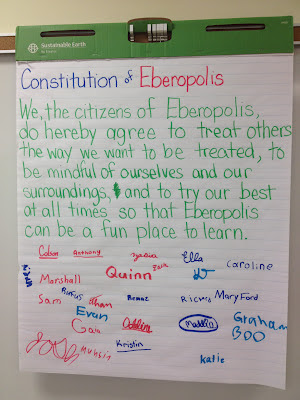 Sustainable Earth
Constitution of Eberopolis
We, the citizens of Eberopolis,
do hereby agree to treat others
the way we want to be treated, to
be mindful of ourselves and our
surroundings, and to try our best
at all times so that Eberopolis
can be a fun place to learn.
Anthony Ella
Quinn Zack Caroline
Marshall
Sam Rufus Ricws Mary Ford
Evan
Graham
Kristin Boo
Muhsin
Katie